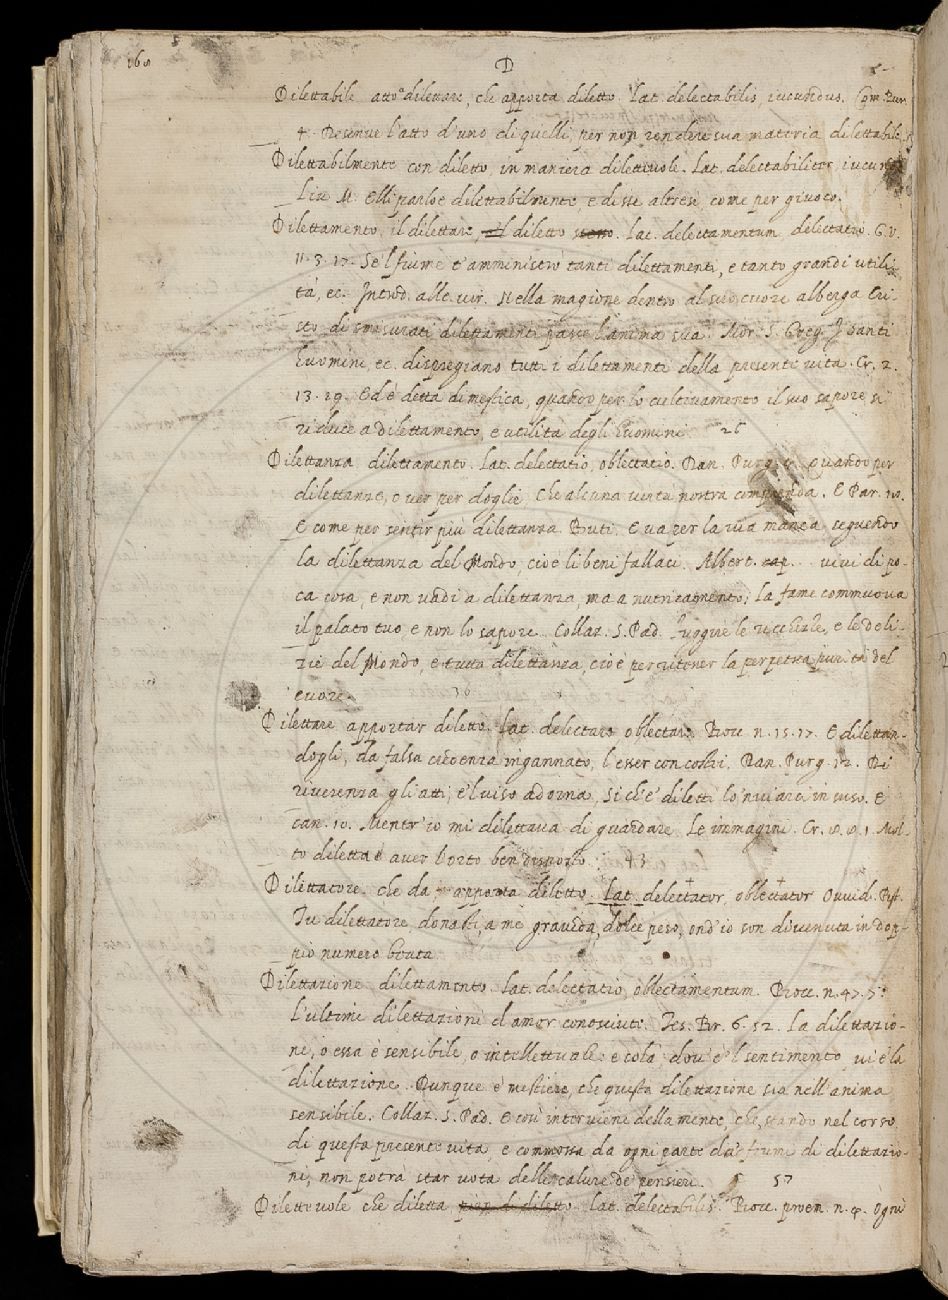 168
D
Dilettabile atto a dilettare, che apporta diletto. Lat. delectabilis, iucundus. Com. Pur.
4. Descrive l'atto d'uno di quelli, per non rendere sua materia dilettabile.
Dilettabilmente con diletto, in maniera dilettevole. Lat. delectabiliter, iucun
Liu. M. Elli parloe dilettabilmente, e disse altresì, come per giuoco.
Dilettamento, il dilettare, il diletto stesso. Lat. delectamentum delectatio. G. V.
11. 3. 17. Se'l fiume t'amministrò tanti dilettamenti, e tanto grandi utili
tà, ec. Introd. alle vir. Nella magione dentro al suo cuore alberga Cri-
sto di smisurati dilettamenti pasce l'anima sua. Mor. S. Greg. I santi
huomini, ec. dispregiano tutti i dilettamenti della presente vita. Cr. 2.
13. 19. Ed è detta dimestica, quando per lo cultivamento il suo sapore si
riduce a dilettamento, e utilità degli huomini. 26
Dilettanza dilettamento. Lat. delectatio, oblectatio. Dan. Purg. 4. Quando per
dilettanze, o ver per doglie, Che alcuna virtù nostra comprenda. E Par. 18.
E come per sentir più dilettanza Buti. E va per la via manca seguendo
la dilettanza del Mondo, cioè li beni fallaci. Albert. cap. . . vivi di po-
ca cosa, e non vadi a dilettanza, ma a nutricamento; la fame commuova
il palato tuo, e non lo sapore. Collaz. S. Pad. Fuggire le ricchezze, e le deli-
zie del Mondo, e tutta dilettanza, cioè per ritener la perpetua purità del
cuore. 36
Dilettare apportar diletto. Lat. delectare oblectare. Bocc. n. 15. 17. E dilettan-
dogli, da falsa credenza ingannato, l'esser con costei. Dan. Purg. 12. Di
riverenza gli atti, e'l viso adorna, Sì ch'e' diletti lo'nviarci in suso. E
can. 10. Mentr'io mi dilettava di guardare Le immagini. Cr. 8. 8. 1. Mol-
to diletta è aver l'orto ben disposto. 43
Dilettatore. che dà apporta diletto. Lat. delectator, oblectator Ovvid. Pist.
Tu dilettatore, donasti a me gravida, dolce peso, ond'io son divenuta in dop-
pio numero
Dilettazione dilettamento. Lat. delectatio, oblectamentum. Bocc. n. 47. 7.
l'ultime dilettazioni d'amor conosciute. Tes. Br. 6. 52. La dilettazio-
ne, o essa è sensibile, o intellettuale e colà, dov'è'l sentimento vi è la
dilettazione. Dunque è mestiere, che questa dilettazione sia nell'anima
sensibile. Collaz. S. Pad. E così interviene della mente, che, stando nel corso
di questa presente vita, e commossa da ogni parte da' fiumi di dilettazio-
ni, non potrà star vota delle calure de' pensieri. 57
Dilettevole che diletta pien di diletto. Lat. delectabilis. Bocc. proem. n. 4. Ogni